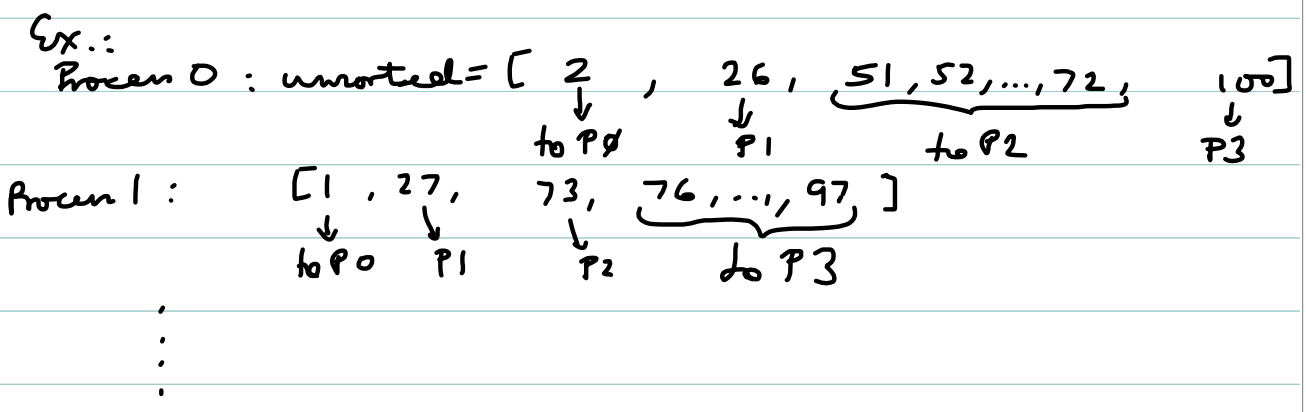 Ex.:
Process 0 : unsorted = [ 2 , 26, 51, 52, ..., 72, 100]
to P0 P1 to P2 P3
Process 1 : [1, 27, 73, 76, ..., 97]
to P0 P1 P2 to P3